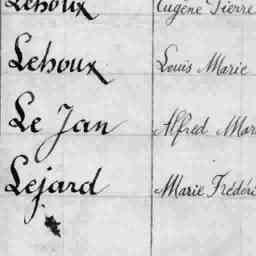 Lehoux Eugène Pierre
Lehoux Louis Marie
Le Jan Alfred Mar
Lejard Marie Frédéri